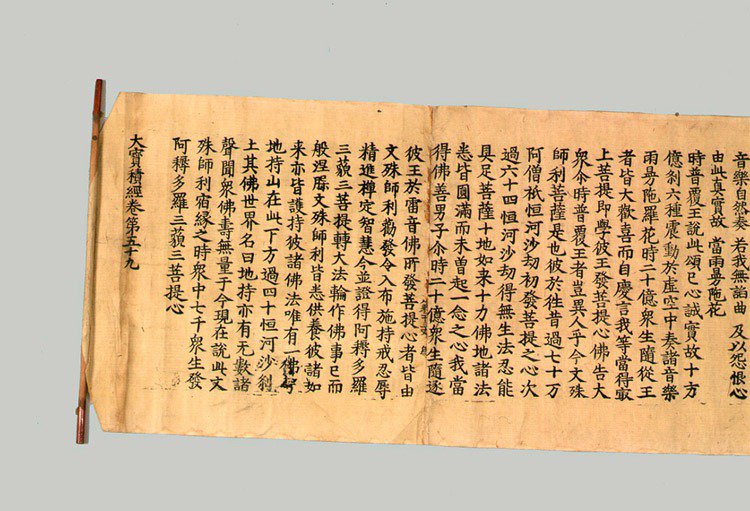 音樂自然奏 若我無諂曲 及以怨恨心
由此真實故 當雨曼陁花
時普覆王說此頌已心誠實故十方
億剎六種震動於虛空中奏諸音樂
雨曼陁羅花時二十億衆生隨從王
者皆大歡喜而自慶言我等當得㝡
上菩提即學彼王發菩提心佛告大
衆尒時普覆王者豈異人乎今文殊
師利菩薩是也彼於往昔過七十万
阿僧祇恒河沙劫初發菩提之心次
過六十四恒河沙劫得無生法忍能
具足菩薩十地如来十力佛地諸法
悉皆圓滿而未曾起一念之心我當
得佛善男子尒時二十億衆生隨逐
彼王於雷音佛所發菩提心者皆由
文殊師利勸發令入布施持戒忍辱
精進禪定智慧今並證得阿耨多羅
三藐三菩提轉大法輪作佛事已而
般涅槃文殊師利皆悉供養彼諸如
来亦皆護持彼諸佛法唯有一佛号
地持山在此下方過四十恒河沙剎
土其佛世界名曰地持亦有無數諸
聲聞衆佛壽無量于今現在說此文
殊師利宿緣之時衆中七千衆生發
阿耨多羅三藐三菩提心
大寶積經卷第五十九